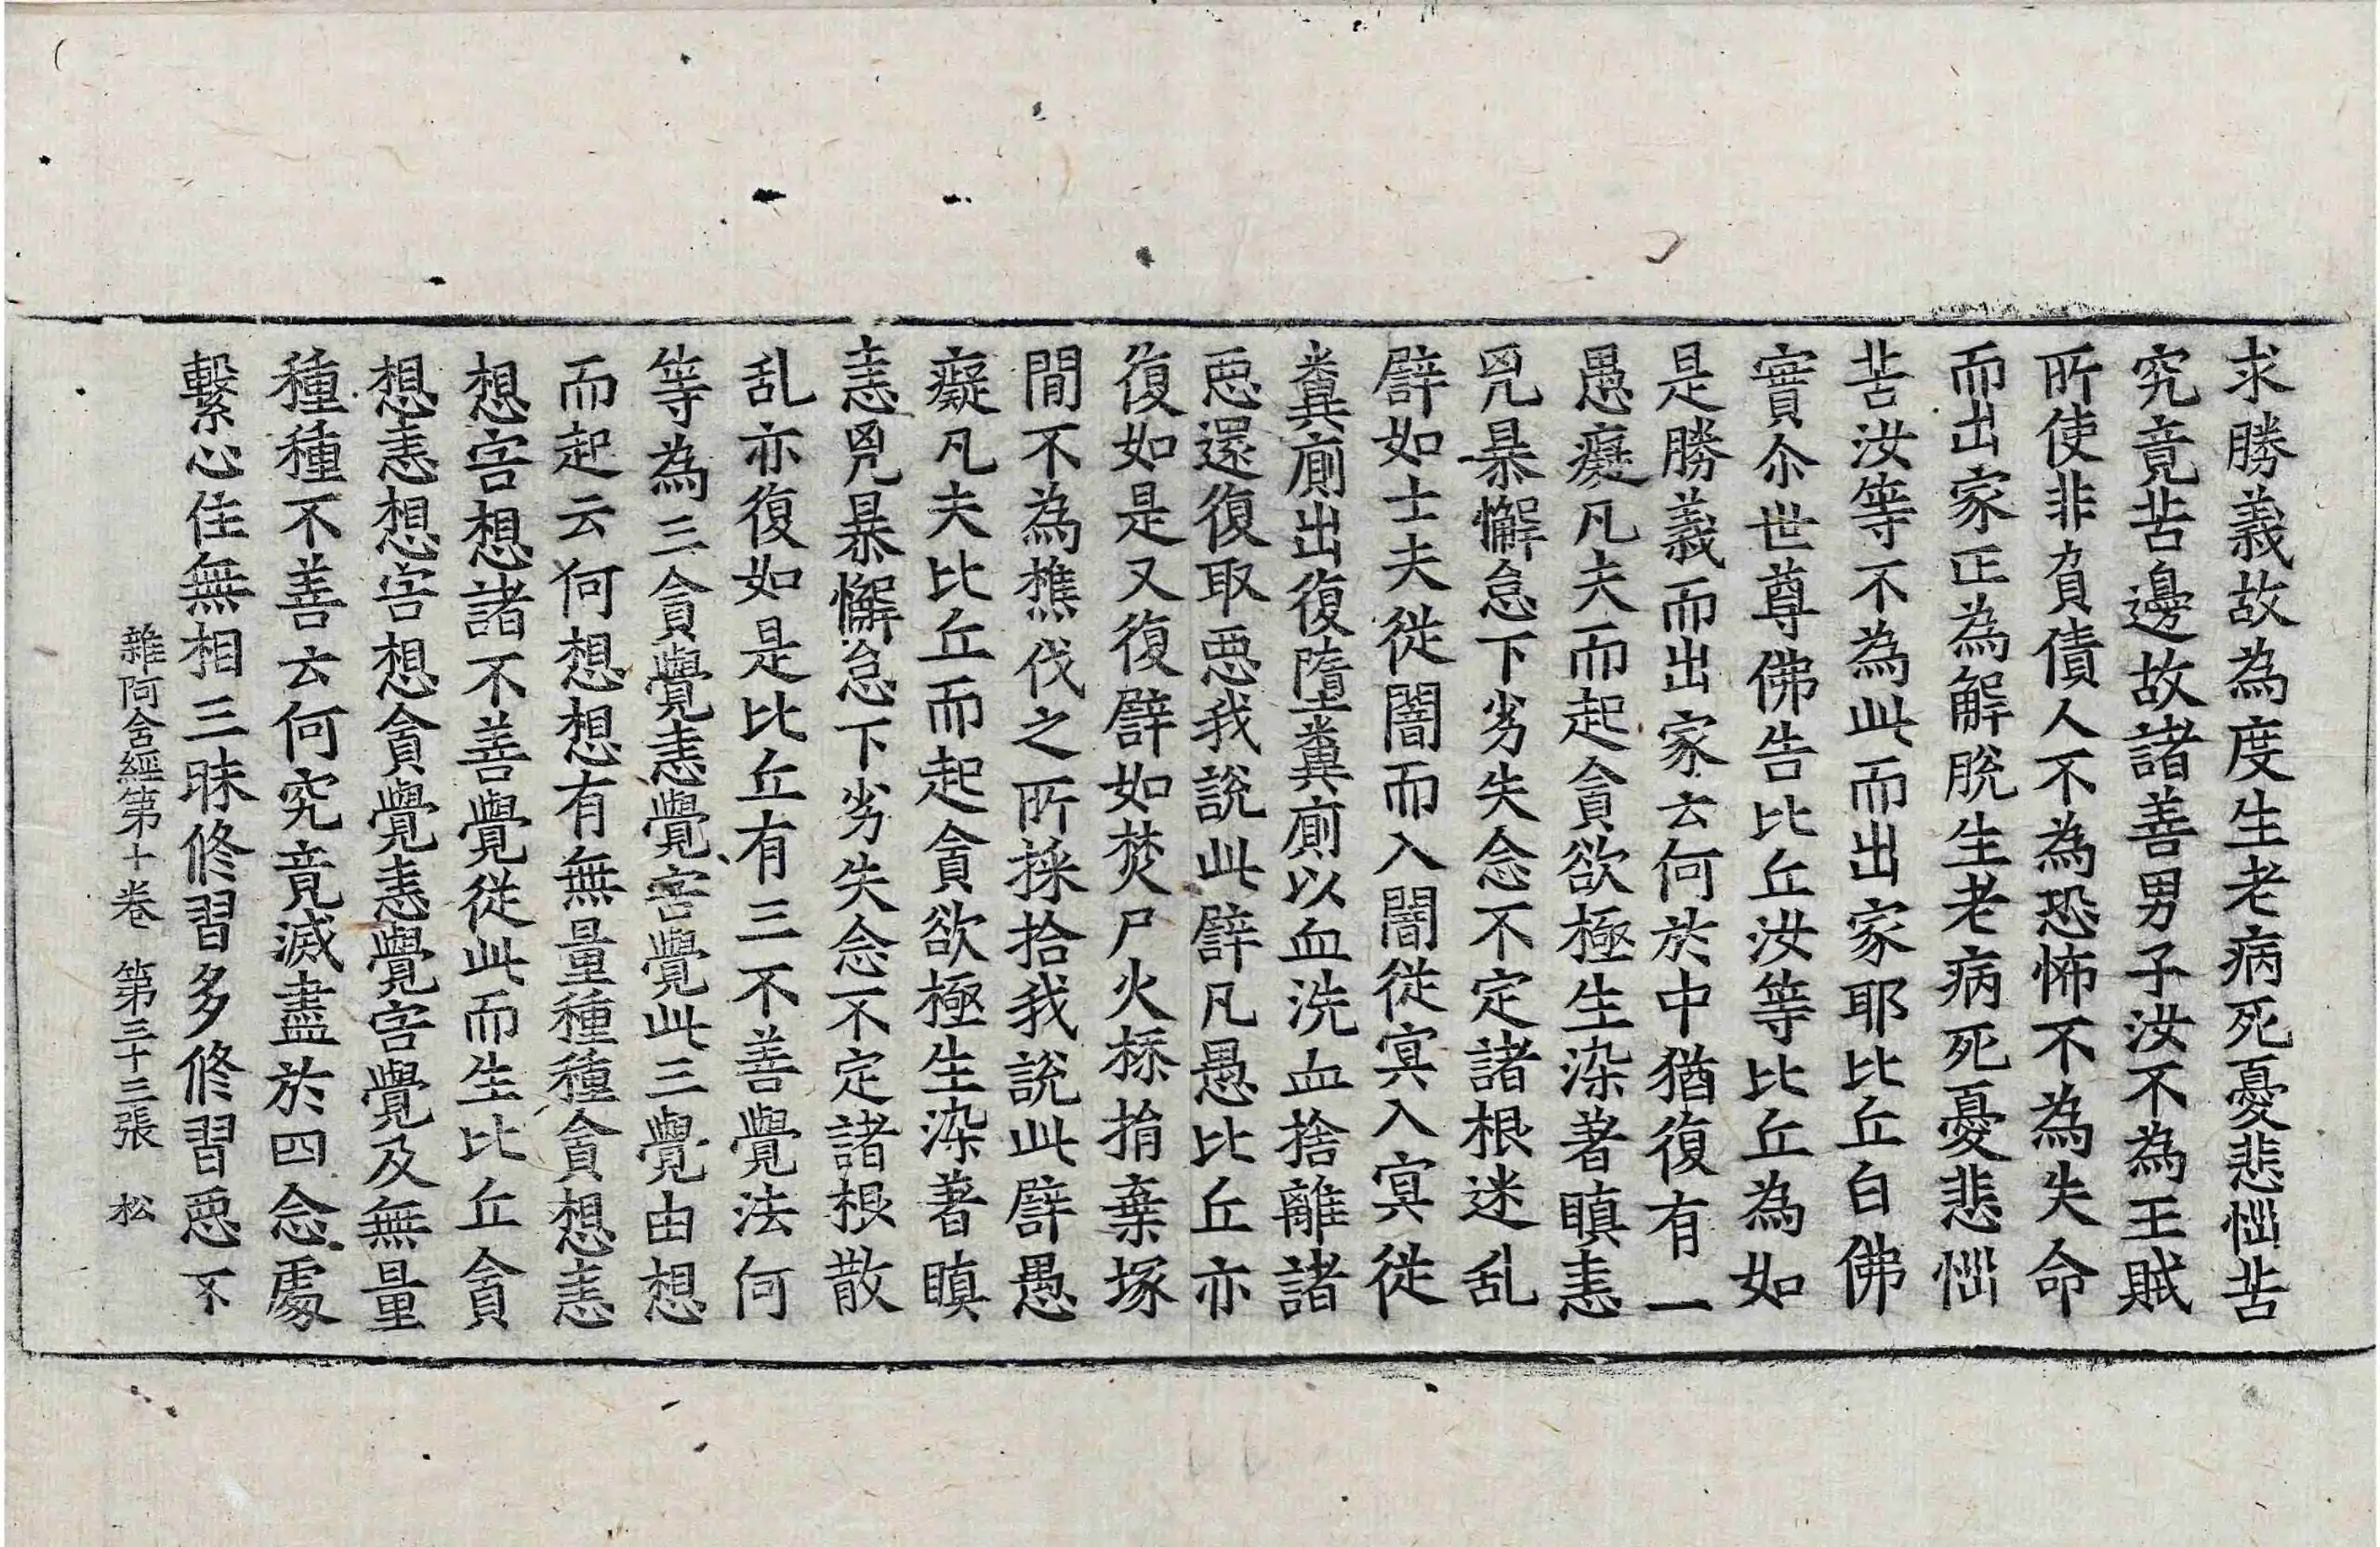 求勝義故為度生老病死憂悲惱苦
究竟苦邊故諸善男子汝不為王賊
所使非負債人不為恐怖不為失命
而出家正為解脫生老病死憂悲惱
苦汝等不為此而出家耶比丘白佛
實尒世尊佛告比丘汝等比丘為如
是勝義而出家云何於中猶復有一
愚癡凡夫而起貪欲極生染著瞋恚
兇暴懈怠下劣失念不定諸根迷乱
譬如士夫從闇而入闇從冥入冥從
糞廁出復墮糞廁以血洗血捨離諸
惡還復取惡我說此譬凡愚比丘亦
復如是又復譬如焚尸火㯹捐棄塚
間不為樵伐之所採拾我說此譬愚
癡凡夫比丘而起貪欲極生染著瞋
恚兇暴懈怠下劣失念不定諸根散
乱亦復如是比丘有三不善覺法何
等為三貪覺恚覺害覺此三覺由想
而起云何想想有無量種種貪想恚
想害想諸不善覺從此而生比丘貪
想恚想害想貪覺恚覺害覺及無量
種種不善云何究竟滅盡於四念處
繫心住無相三昧修習多修習惡不
雜阿含經第十卷 第三十三張 松